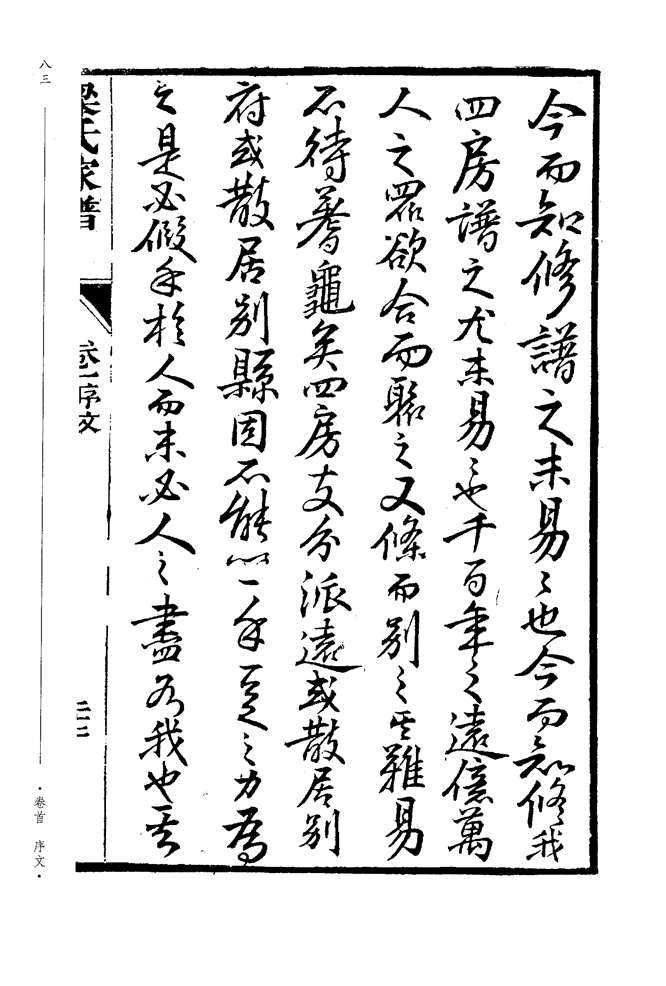 今而知修譜之未易々也今而知修我
四房譜之尤未易々也千百年之遠億萬
人之眾欲合而聯之又條而別之其難易
不待蓍龜矣四房支分派遠或散居別
府或散居别縣固不能以一手一足之力爲
之是必假手於人而未必人之盡如我也吾
梁氏家譜
卷一序文
二十二
八三
·卷首 序文·